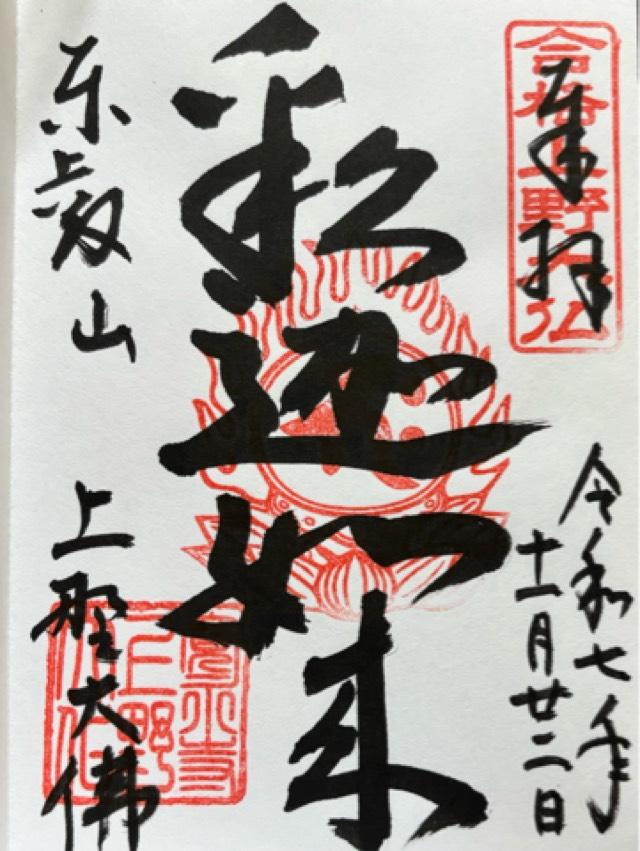 合格上野大仏
奉拝
令和七年
十一月廿二日
釈迦如来
東叡山
上野大佛